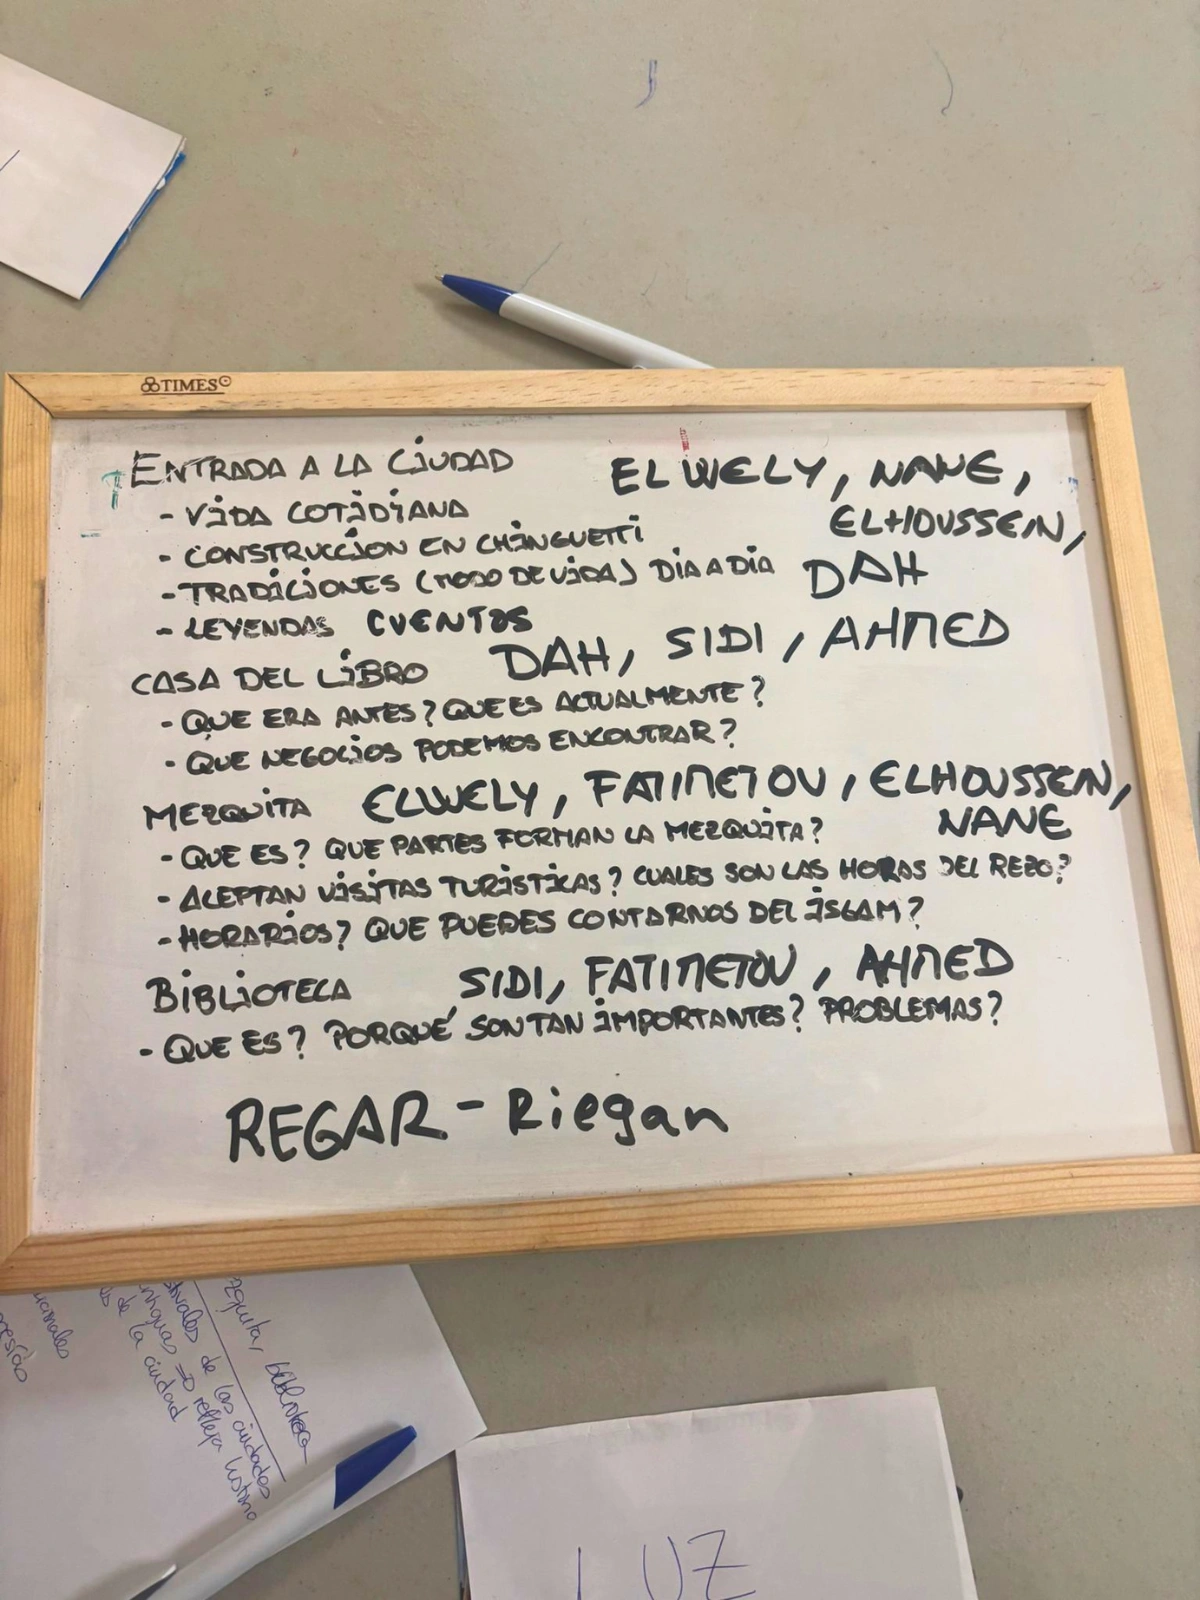 TIMES
ENTRADA A LA CIUDAD ELWELY, NANE,
- VIDA COTIDIANA ELHOUSSEIN,
- CONSTRUCCION EN CHINGUETTI
- TRADICIONES (MODO DE VIDA) DIA A DIA DAH
- LEYENDAS CUENTOS
CASA DEL LIBRO DAH, SIDI, AHMED
- QUE ERA ANTES? QUE ES ACTUALMENTE?
- QUE NEGOCIOS PODEMOS ENCONTRAR?
MEZQUITA ELWELY, FATIMETOU, ELHOUSSEIN,
NANE
- QUE ES? QUE PARTES FORMAN LA MEZQUITA?
- ACEPTAN VISITAS TURISTICAS? CUALES SON LAS HORAS DEL REZO?
- HORARIOS? QUE PUEDES CONTARNOS DEL ISLAM?
BIBLIOTECA SIDI, FATIMETOU, AHMED
- QUE ES? PORQUÉ SON TAN IMPORTANTES? PROBLEMAS?
REGAR - Riegan
de las ciudades
=> refleja
de la ciudad
LUZ